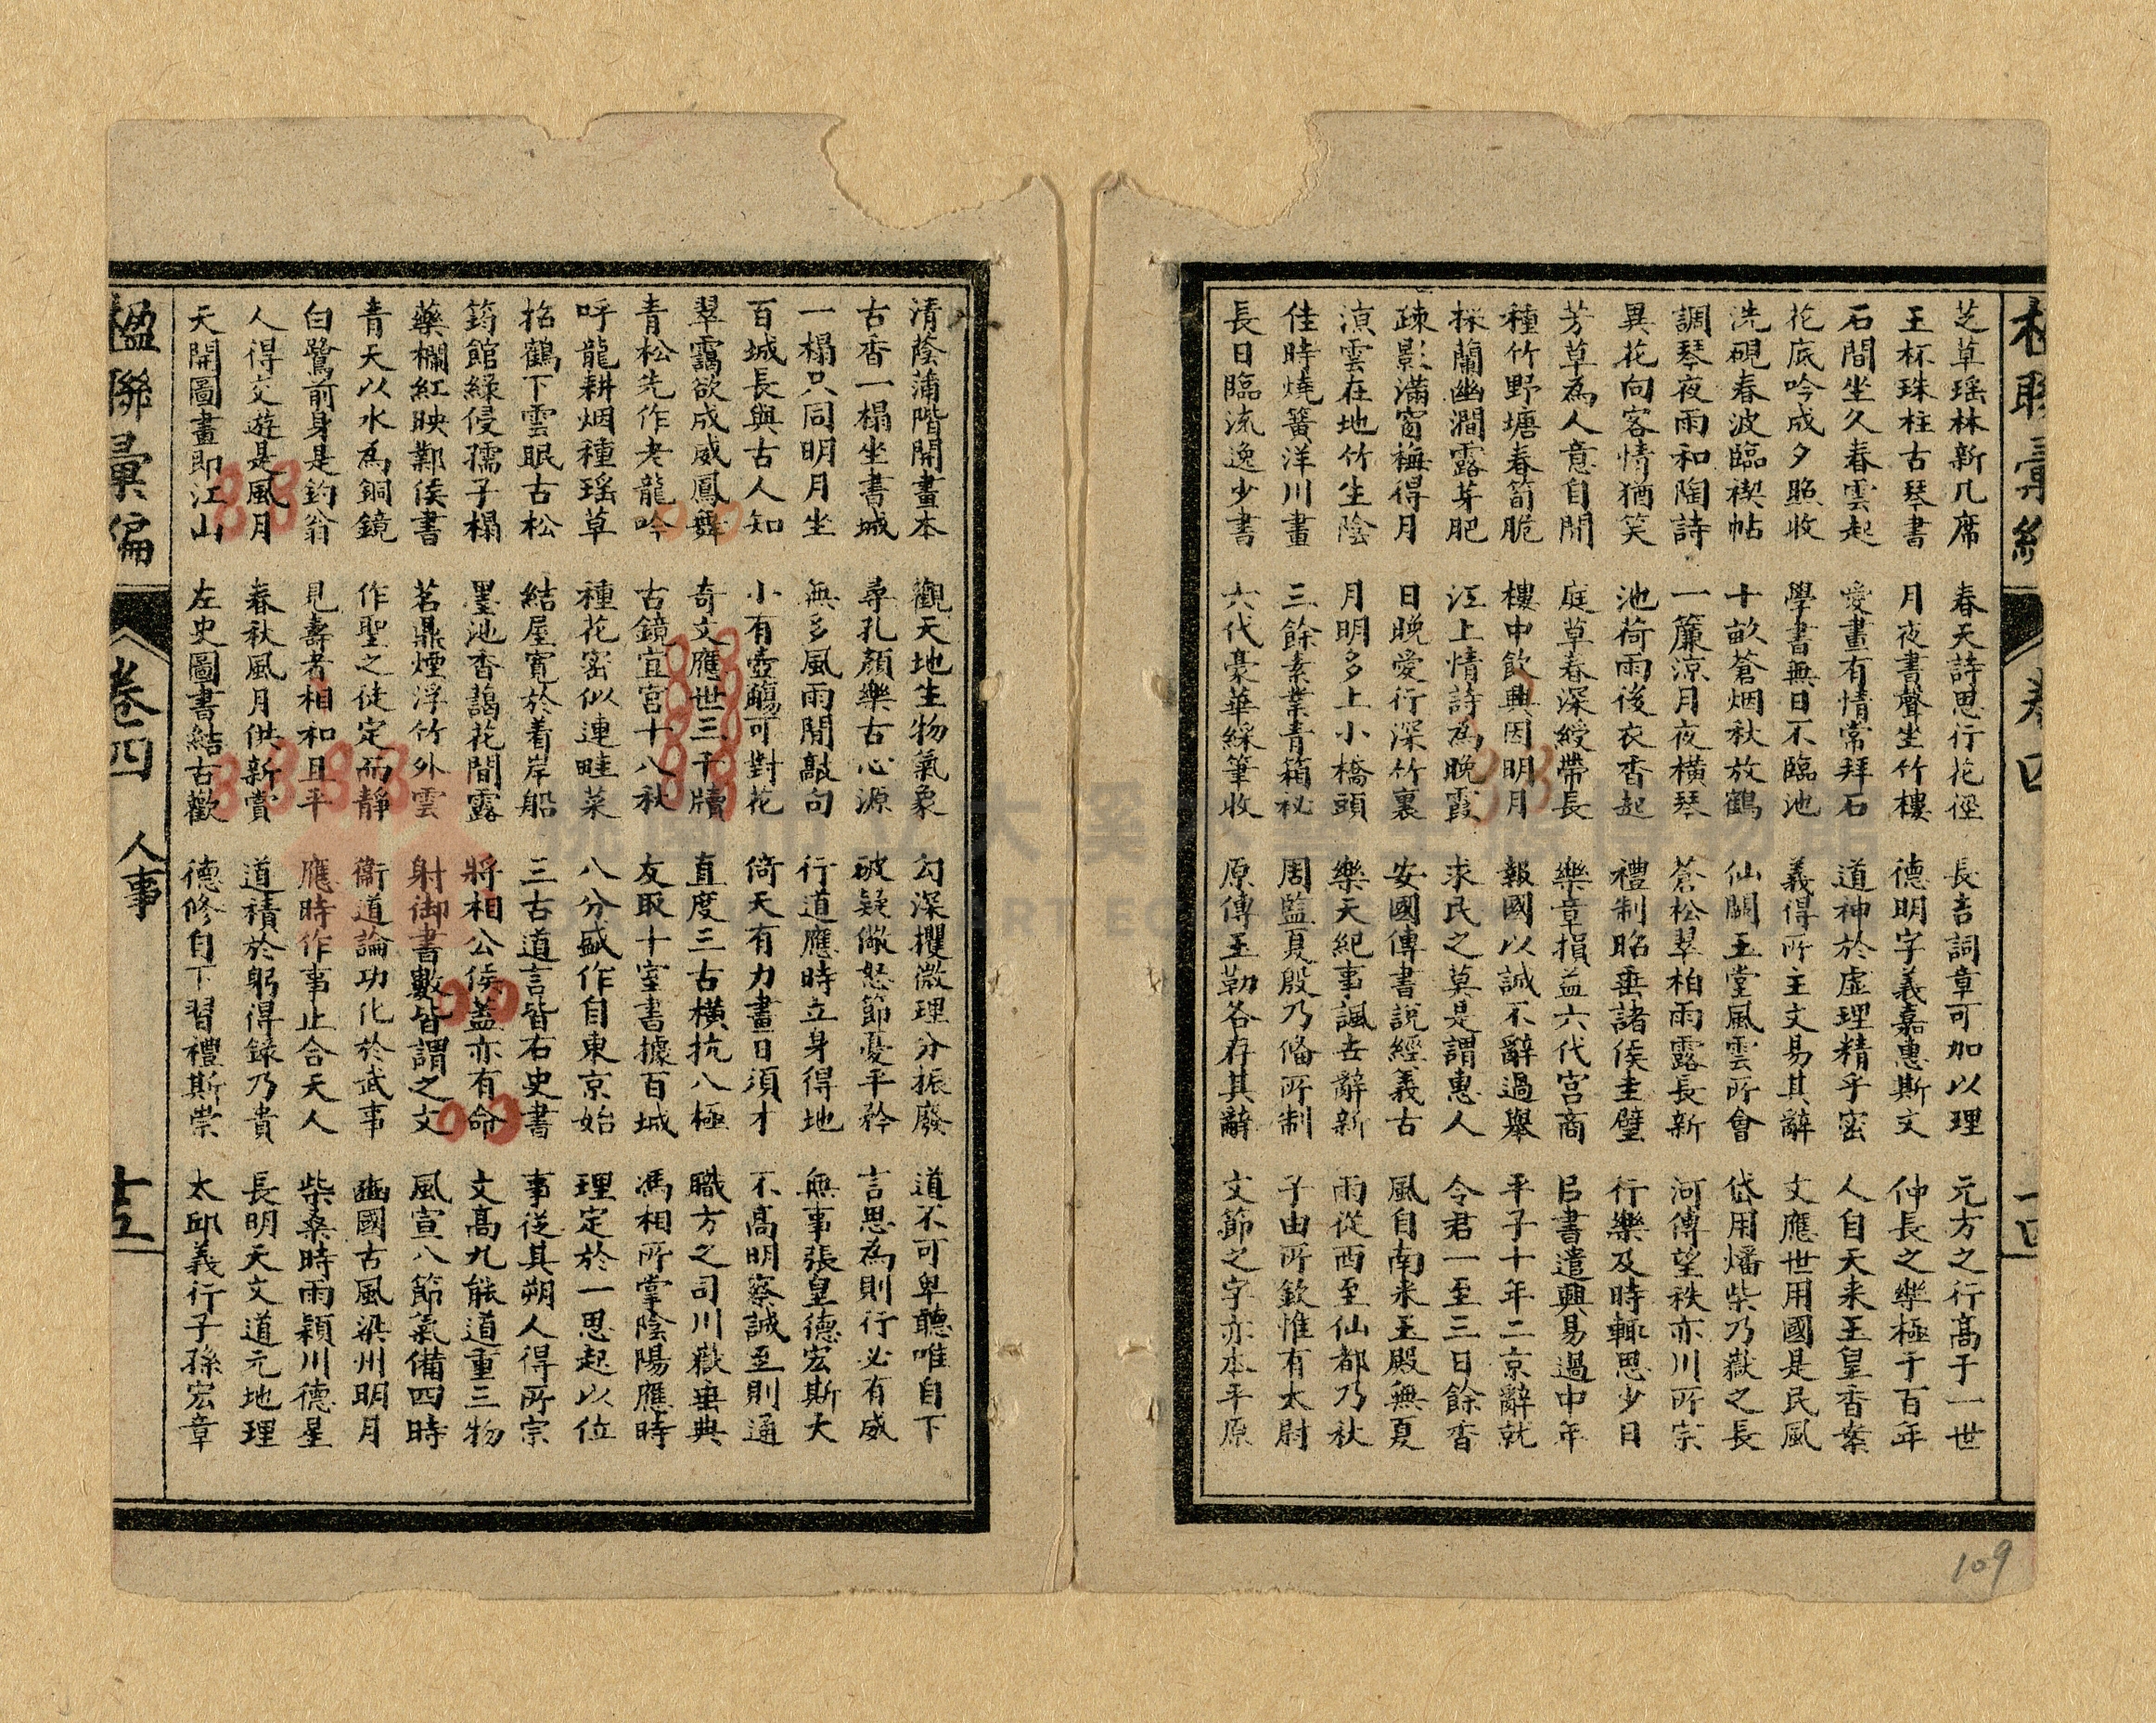 楹聯彙編 卷四 十四
芝草瑶林新几席 春天詩思行花徑 長言詞章可加以理 元方之行高于一世
玉杯珠柱古琴書 月夜書聲坐竹樓 德明字義嘉惠斯文 仲長之樂極于百年
石間坐久春雲起 愛畫有情常拜石 道神於虛理精乎密 人自天來玉皇香案
花底吟成夕照收 學書無日不臨池 義得所主文易其辭 文應世用國是民風
洗硯春波臨禊帖 十畝蒼烟秋放鶴 仙關玉堂風雲所會 岱用燔柴乃嶽之長
調琴夜雨和陶詩 一簾涼月夜橫琴 蒼松翠柏雨露長新 河傳望秩亦川所宗
異花向客情猶笑 池荷雨後衣香起 禮制昭垂諸侯圭璧 行樂及時輒思少日
芳草為人意自閒 庭草春深綬帶長 樂章損益六代宮商 呂書遣興易過中年
種竹野塘春筍脆 樓中飲興因明月 報國以誠不辭過舉 平子十年二京辭就
採蘭幽澗露芽肥 江上情詩為晚霞 求民之莫是謂惠人 令君一至三日餘香
疎影滿窗梅得月 日晚愛行深竹裏 安國傳書說經義古 風自南來玉殿無夏
涼雲在地竹生陰 月明多上小橋頭 樂天紀事諷世辭新 雨從西至仙都乃秋
佳時燒篝洋川畫 三餘素業青箱秘 周監夏殷乃脩所制 子由所欽惟有太尉
長日臨流逸少書 六代豪華綵筆收 原傳玉勒各存其辭 文節之字亦本平原
清蔭蒲階開畫本 觀天地生物氣象 勾深攫微理分振廢 道不可卑聽唯自下
古香一榻坐書城 尋孔顏樂古心源 破疑儆怒節憂平矜 言思為則行必有威
一榻只同明月坐 無多風雨閒敲句 行道應時立身得地 無事張皇德宏斯大
百城長與古人知 小有壺觴可對花 倚天有力畫日須才 不高明察誠至則通
翠靄欲成威鳳舞 奇文應世三千牘 直度三古橫抗八極 職方之司川嶽垂典
青松先作老龍吟 古鏡宜宮十八秋 友取十室書據百城 馮相所掌陰陽應時
呼龍耕烟種瑶草 種花密似連畦菜 八分盛作自東京始 理定於一思起以位
招鶴下雲眠古松 結屋寬於着岸船 三古道言皆右史書 事從其朔人得所宗
筠館緑侵孺子榻 墨池香藹花間露 將相公侯蓋亦有命 文高九能道重三物
藥欄紅映鄴侯書 茗鼎煙浮竹外雲 射御書數皆謂之文 風宣八節氣備四時
青天以水為銅鏡 作聖之徒定而靜 衛道論功化於武事 幽國古風梁州明月
白鷺前身是釣翁 見壽者相和且平 應時作事止合天人 柴桑時雨潁川德星
人得交遊是風月 春秋風月供新賞 道積於躬得錄乃貴 長明天文道元地理
天開圖畫即江山 左史圖書結古歡 德修自下習禮斯崇 太邱義行子孫宏章
楹聯彙編 卷四 人事 十五
109